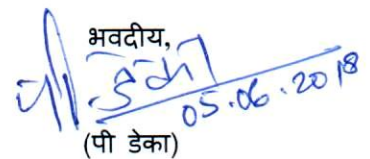 भवदीय,
पी. डेका
05.06.2018
(पी डेका)